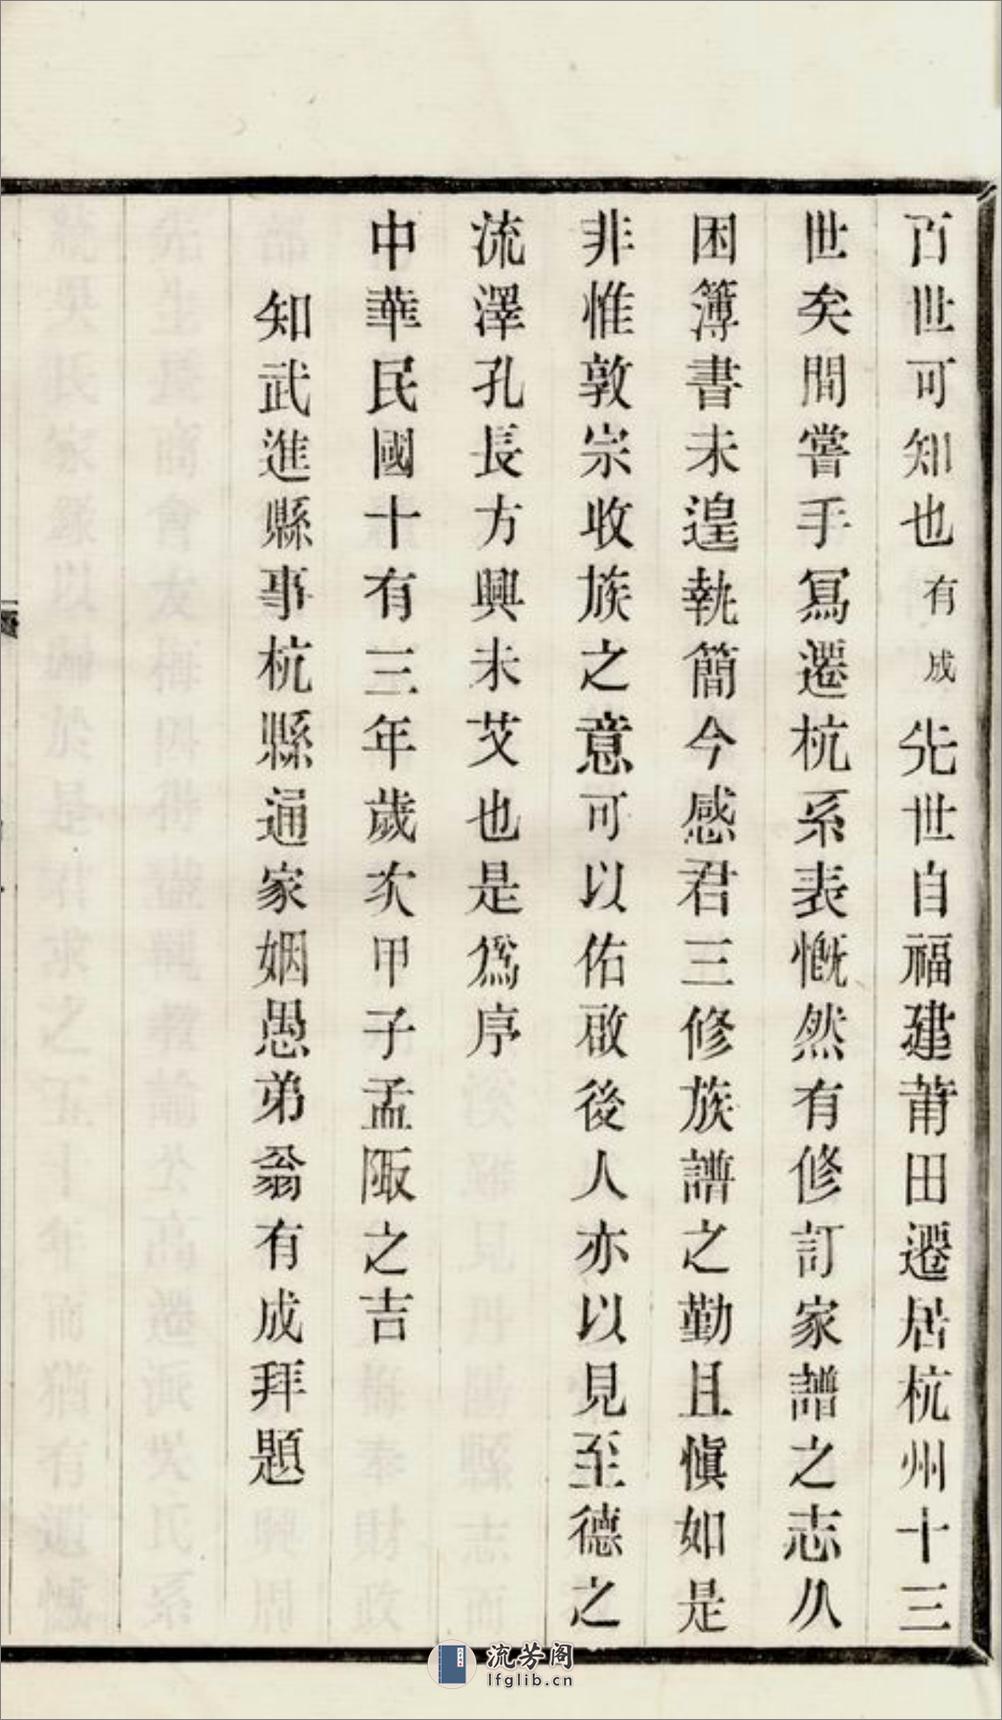 百世可知也有成先世自福建莆田遷居杭州十三
世矣間嘗手寫遷杭系表慨然有修訂家譜之志久
困簿書未遑執簡今感君三修族譜之勤且慎如是
非惟敦宗收族之意可以佑啟後人亦以見至德之
流澤孔長方興未艾也是爲序
中華民國十有三年歲次甲子孟陬之吉
知武進縣事杭縣通家姻愚弟翁有成拜題
流芳阁
lfglib.cn